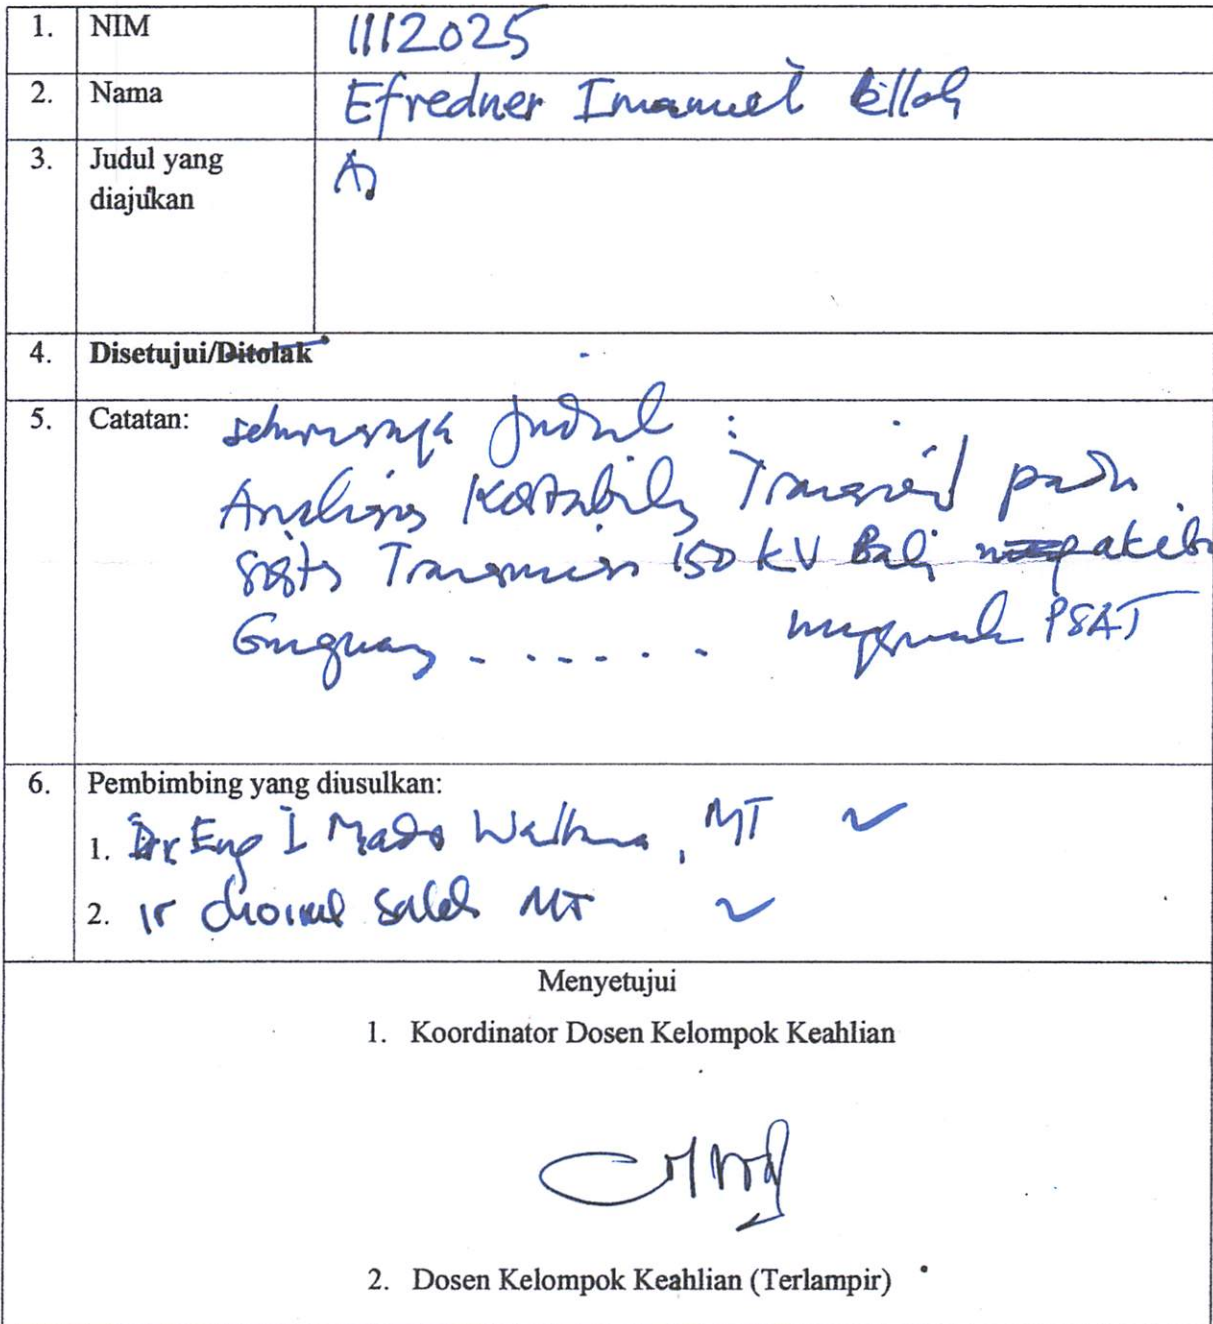 1. NIM 1112025
2. Nama Efredner Imanuel
3. Judul yang
diajukan
4. Disetujui/Ditolak
5. Catatan: Judul :
Analisis Kestabilan Transient pada
Transmisi 150 kV Bali akibat
PSAT
6. Pembimbing yang diusulkan:
1. Dr Eng I Made MT
2. Ir Choirul Saleh MT
Menyetujui
1. Koordinator Dosen Kelompok Keahlian
2. Dosen Kelompok Keahlian (Terlampir)